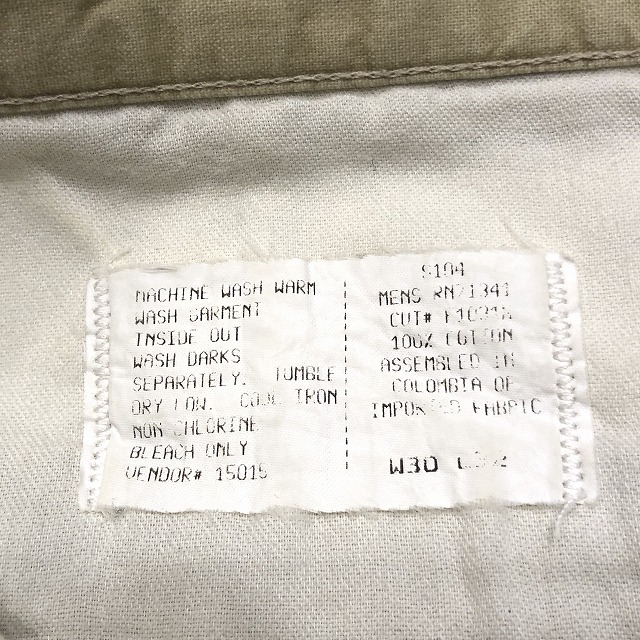 MACHINE WASH WARM
WASH GARMENT
INSIDE OUT
WASH DARKS
SEPARATELY. TUMBLE
DRY LOW. COOL IRON
NON CHLORINE
BLEACH ONLY
VENDOR# 15015
9104
MENS RN71341
CUT#
100% COTTON
ASSEMBLED IN
COLOMBIA OF
IMPORTED FABRIC
W30